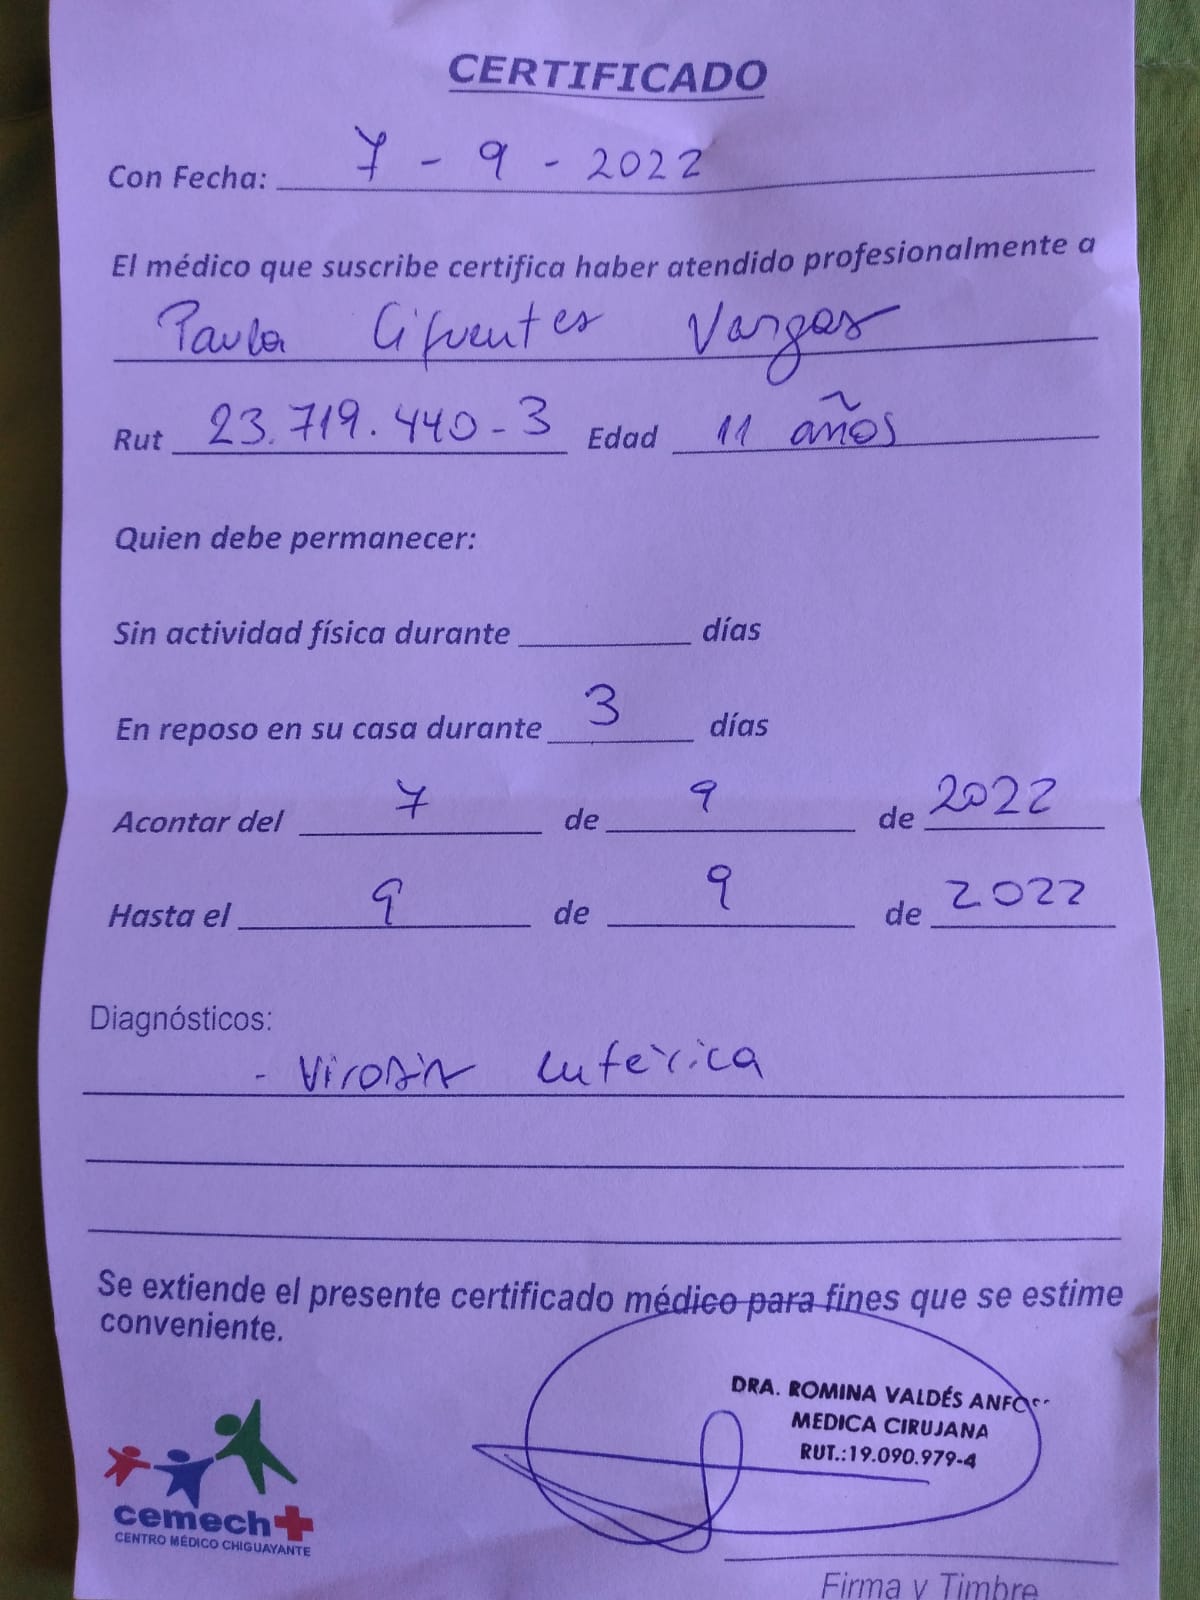 CERTIFICADO
Con Fecha: 7 - 9 - 2022
El médico que suscribe certifica haber atendido profesionalmente a
Paula Cifuentes Vargas
Rut 23.719.440-3 Edad 11 años
Quien debe permanecer:
Sin actividad física durante ________ días
En reposo en su casa durante 3 días
Acontar del 7 de 9 de 2022
Hasta el 9 de 9 de 2022
Diagnósticos:
- Virosis entérica
Se extiende el presente certificado médico para fines que se estime
conveniente.
DRA. ROMINA VALDÉS
MEDICA CIRUJANA
RUT.:19.090.979-4
cemech
CENTRO MÉDICO CHIGUAYANTE
Firma y Timbre